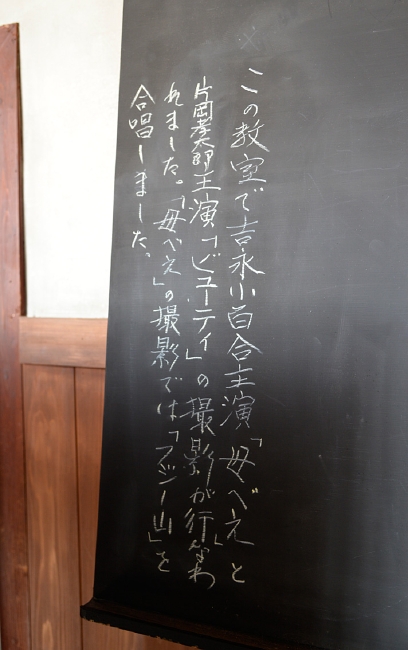 この教室で吉永小百合主演「母べえ」と
片岡孝太郎主演「ビューティ」の撮影が行なわ
れました。「母べえ」の撮影では「フジノ山」を
合唱しました。